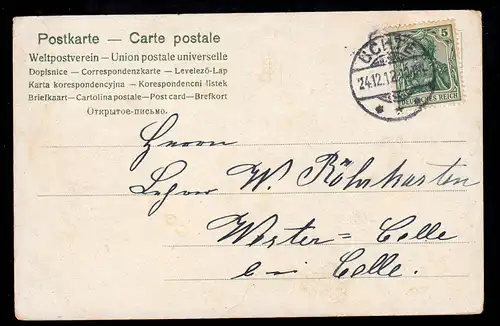 Postkarte – Carte postale
Weltpostverein – Union postale universelle
Dopisnice – Correspondenzkarte – Levelező-Lap
Karta korespondencyjna – Korespondencni listek
Briefkaart – Cartolina postale – Post card – Brefkort
Открытое-письмо.
UCHTE
24.12.
5
DEUTSCHES REICH
Herrn
Lehrer W. Röhrkasten
Wester=Celle
bei Celle.